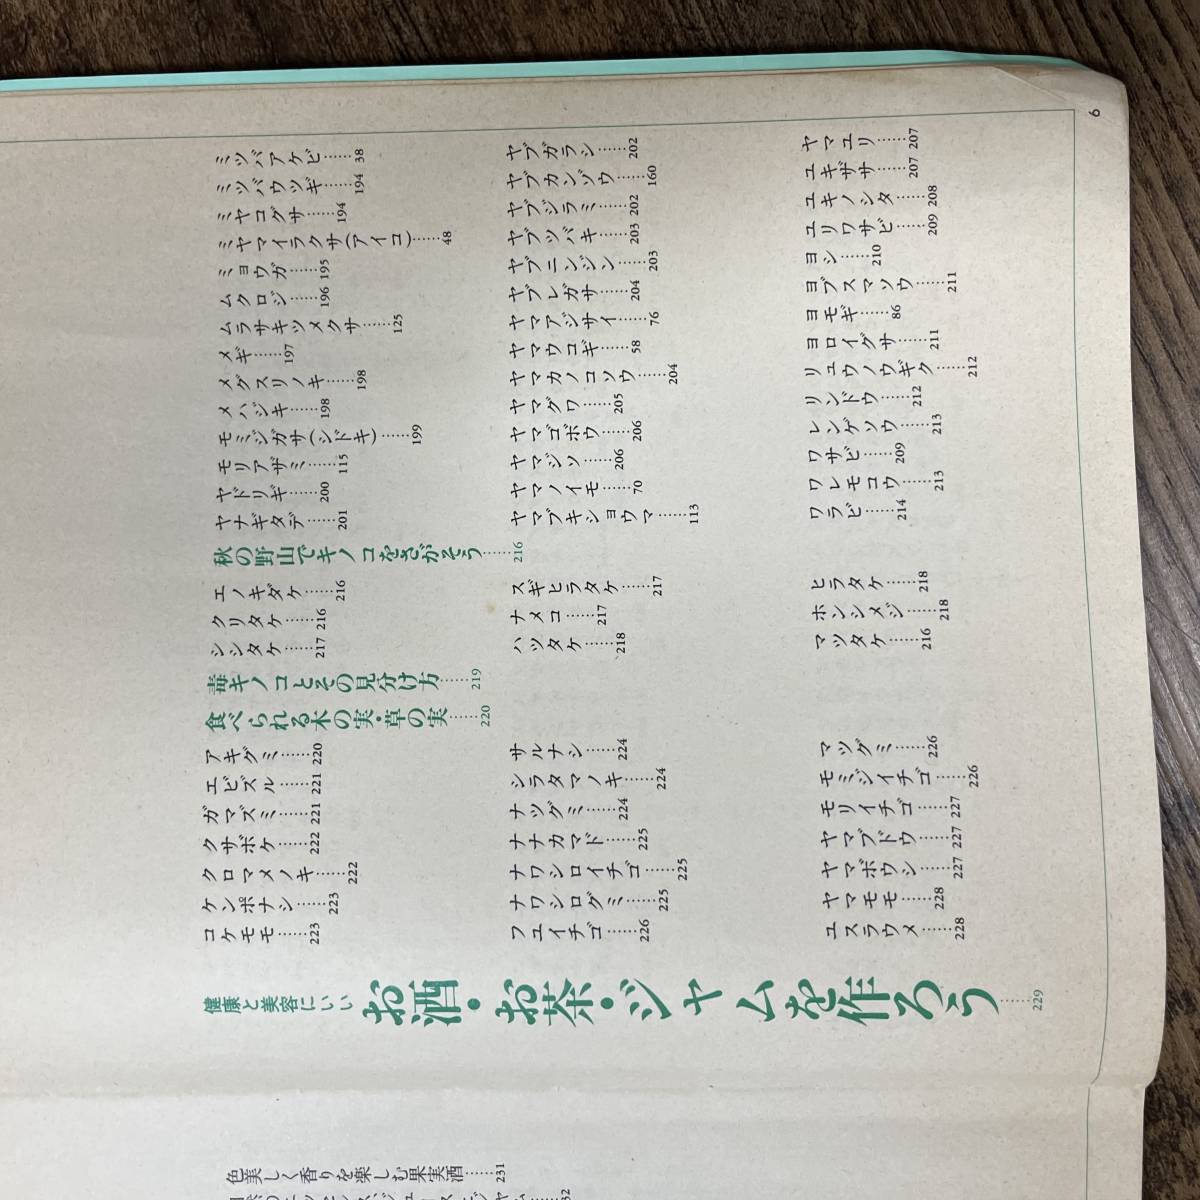 6
ミツバアケビ……38
ミツバウツギ……194
ミヤコグサ……194
ミヤマイラクサ(アイコ)……48
ミョウガ……195
ムクロジ……196
ムラサキツメクサ……125
メギ……197
メグスリノキ……198
メハジキ……198
モミジガサ(シドキ)……199
モリアザミ……115
ヤドリギ……200
ヤナギタデ……201
ヤブガラシ……202
ヤブカンゾウ……160
ヤブジラミ……202
ヤブツバキ……203
ヤブニンジン……203
ヤブレガサ……204
ヤマアジサイ……76
ヤマウコギ……58
ヤマカノコソウ……204
ヤマグワ……205
ヤマゴボウ……206
ヤマジソ……206
ヤマノイモ……70
ヤマブキショウマ……113
ヤマユリ……207
ユキザサ……207
ユキノシタ……208
ユリワサビ……209
ヨシ……210
ヨブスマソウ……211
ヨモギ……86
ヨロイグサ……211
リュウノウギク……212
リンドウ……212
レンゲソウ……213
ワサビ……209
ワレモコウ……213
ワラビ……214
秋の野山でキノコをさがそう……216
エノキダケ……216
クリタケ……216
シシタケ……217
スギヒラタケ……217
ナメコ……217
ハツタケ……218
ヒラタケ……218
ホンシメジ……218
マツタケ……216
毒キノコとその見分け方……219
食べられる木の実・草の実……220
アキグミ……220
エビズル……221
ガマズミ……221
クサボケ……222
クロマメノキ……222
ケンポナシ……223
コケモモ……223
サルナシ……224
シラタマノキ……224
ナツグミ……224
ナナカマド……225
ナワシロイチゴ……225
ナワシログミ……225
フユイチゴ……226
マツグミ……226
モミジイチゴ……226
モリイチゴ……227
ヤマブドウ……227
ヤマボウシ……227
ヤマモモ……228
ユスラウメ……228
健康と美容にいい
お酒・お茶・ジャムを作ろう……229
色美しく香りを楽しむ果実酒……231